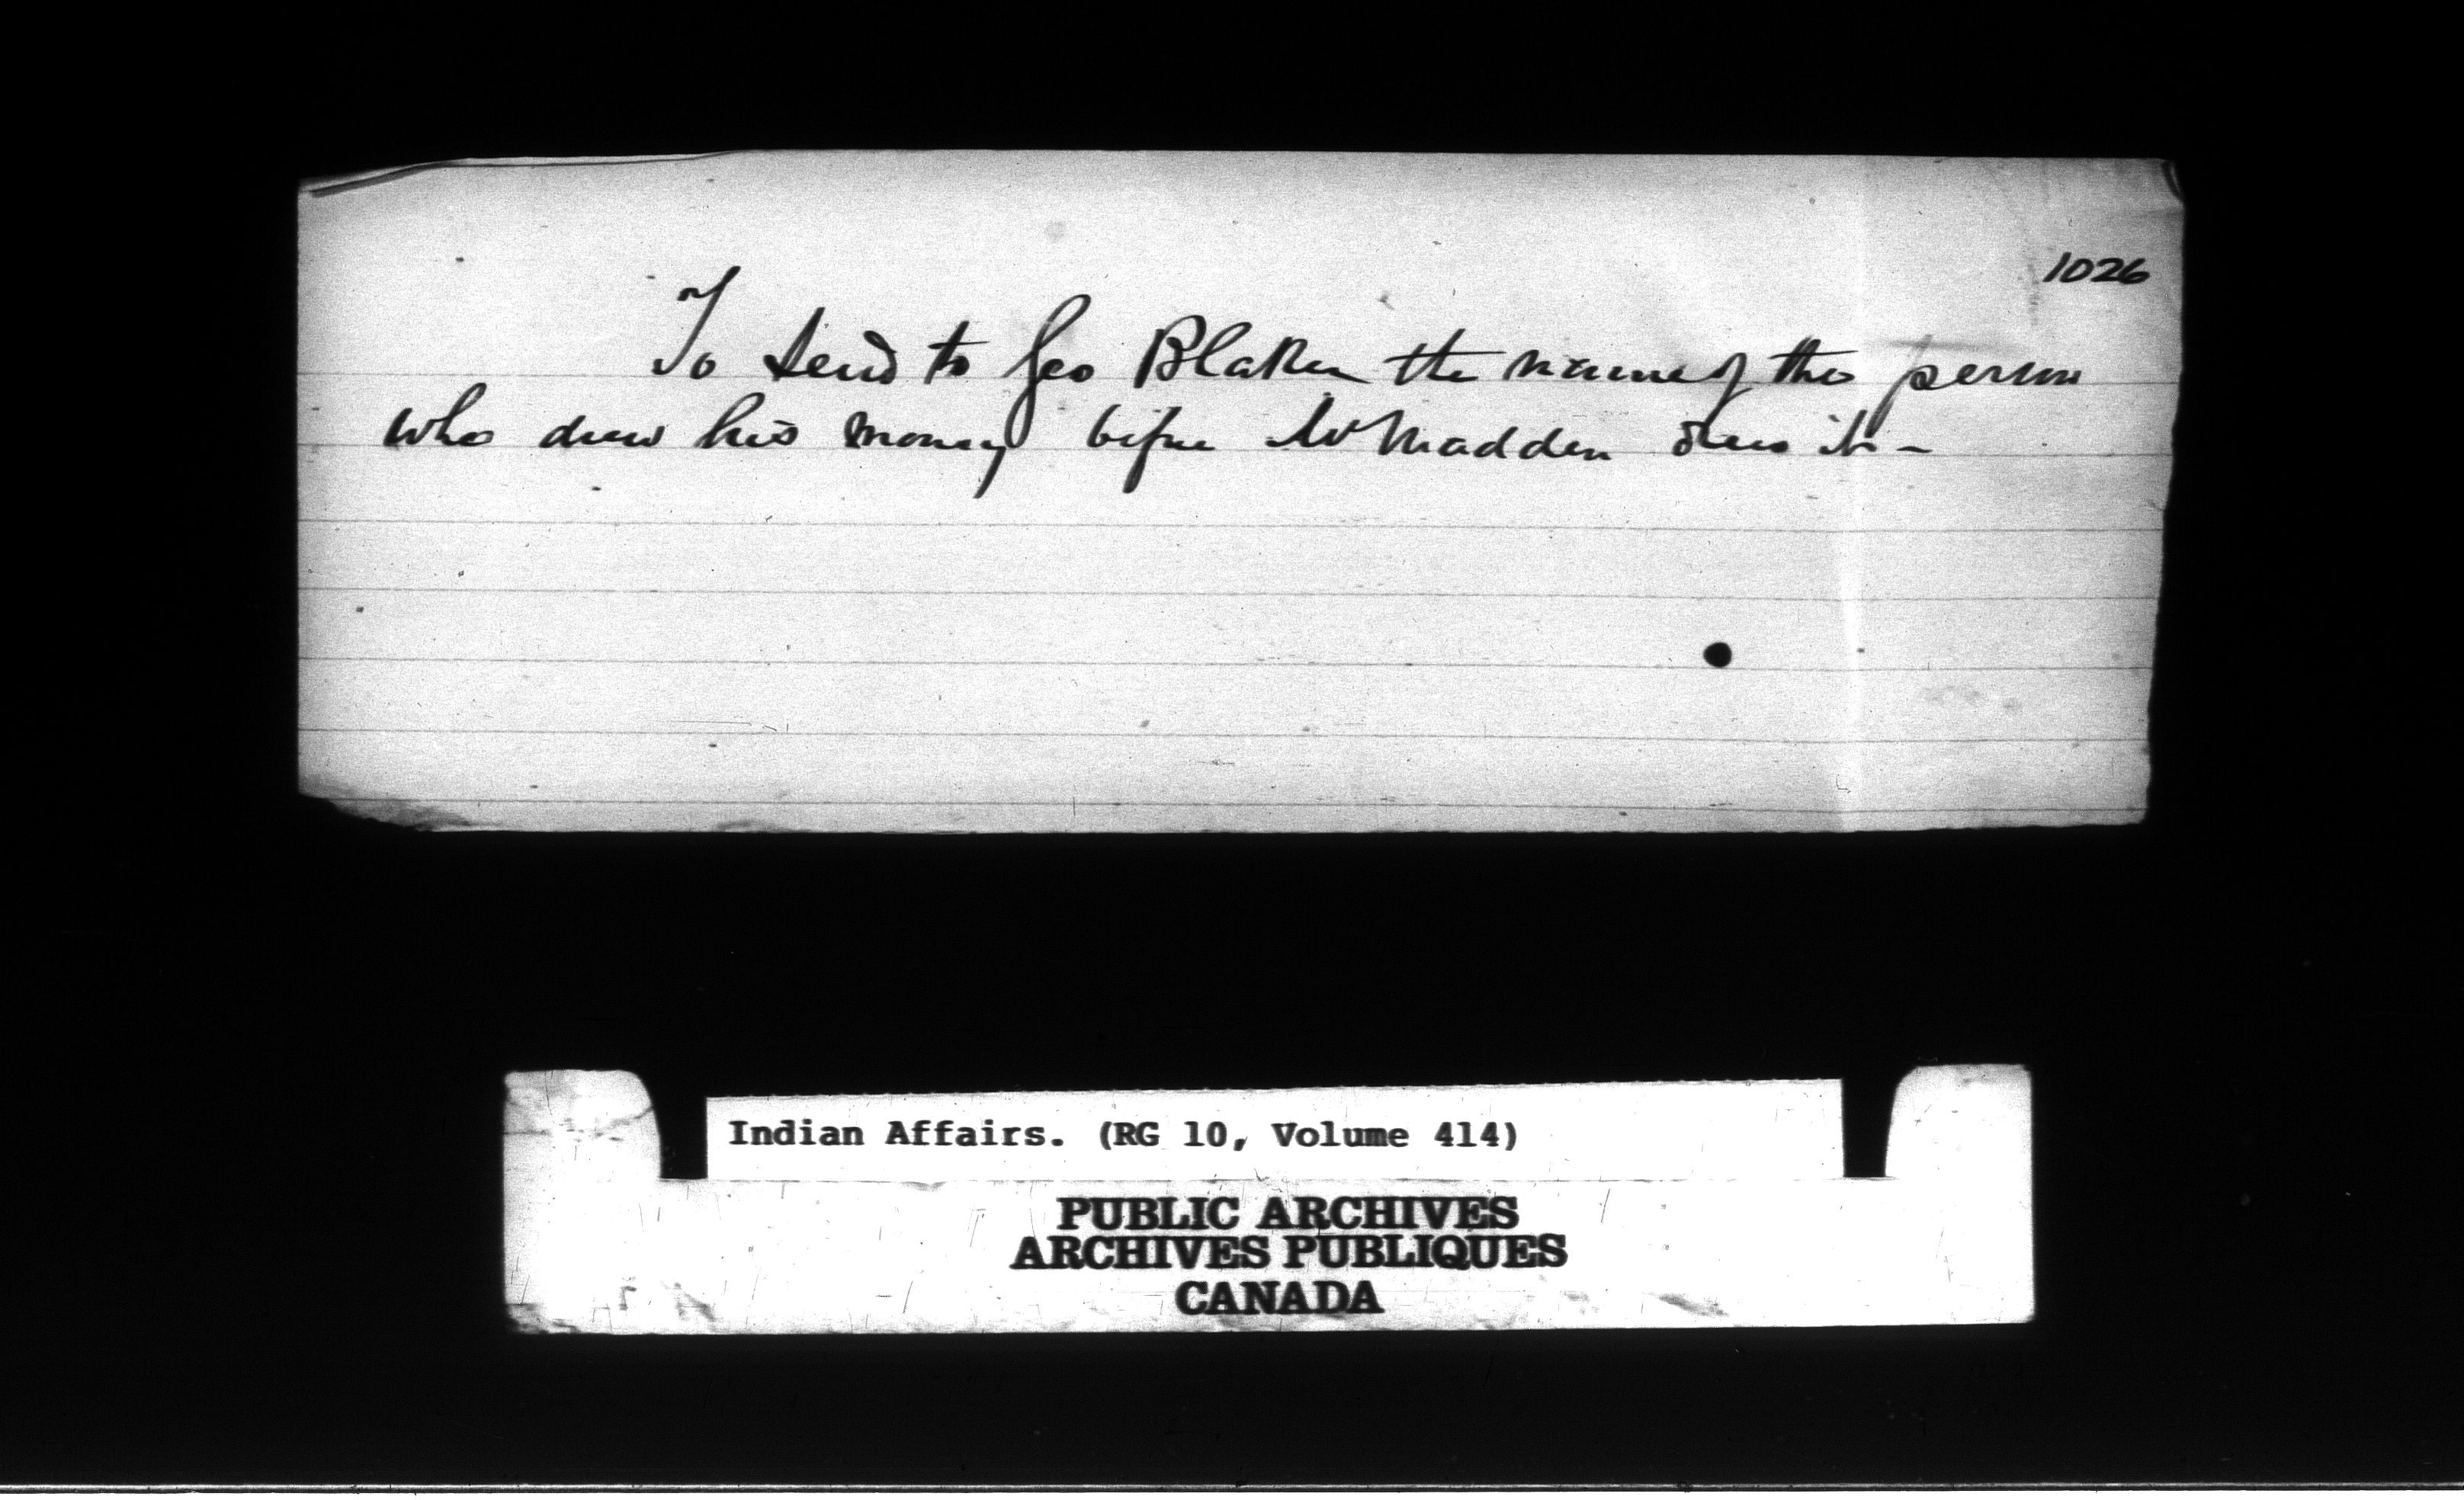 1026
To send to Geo Blaker the name of the person
who drew his money before Mr Madden drew it -
Indian Affairs. (RG 10, Volume 414)
PUBLIC ARCHIVES
ARCHIVES PUBLIQUES
CANADA